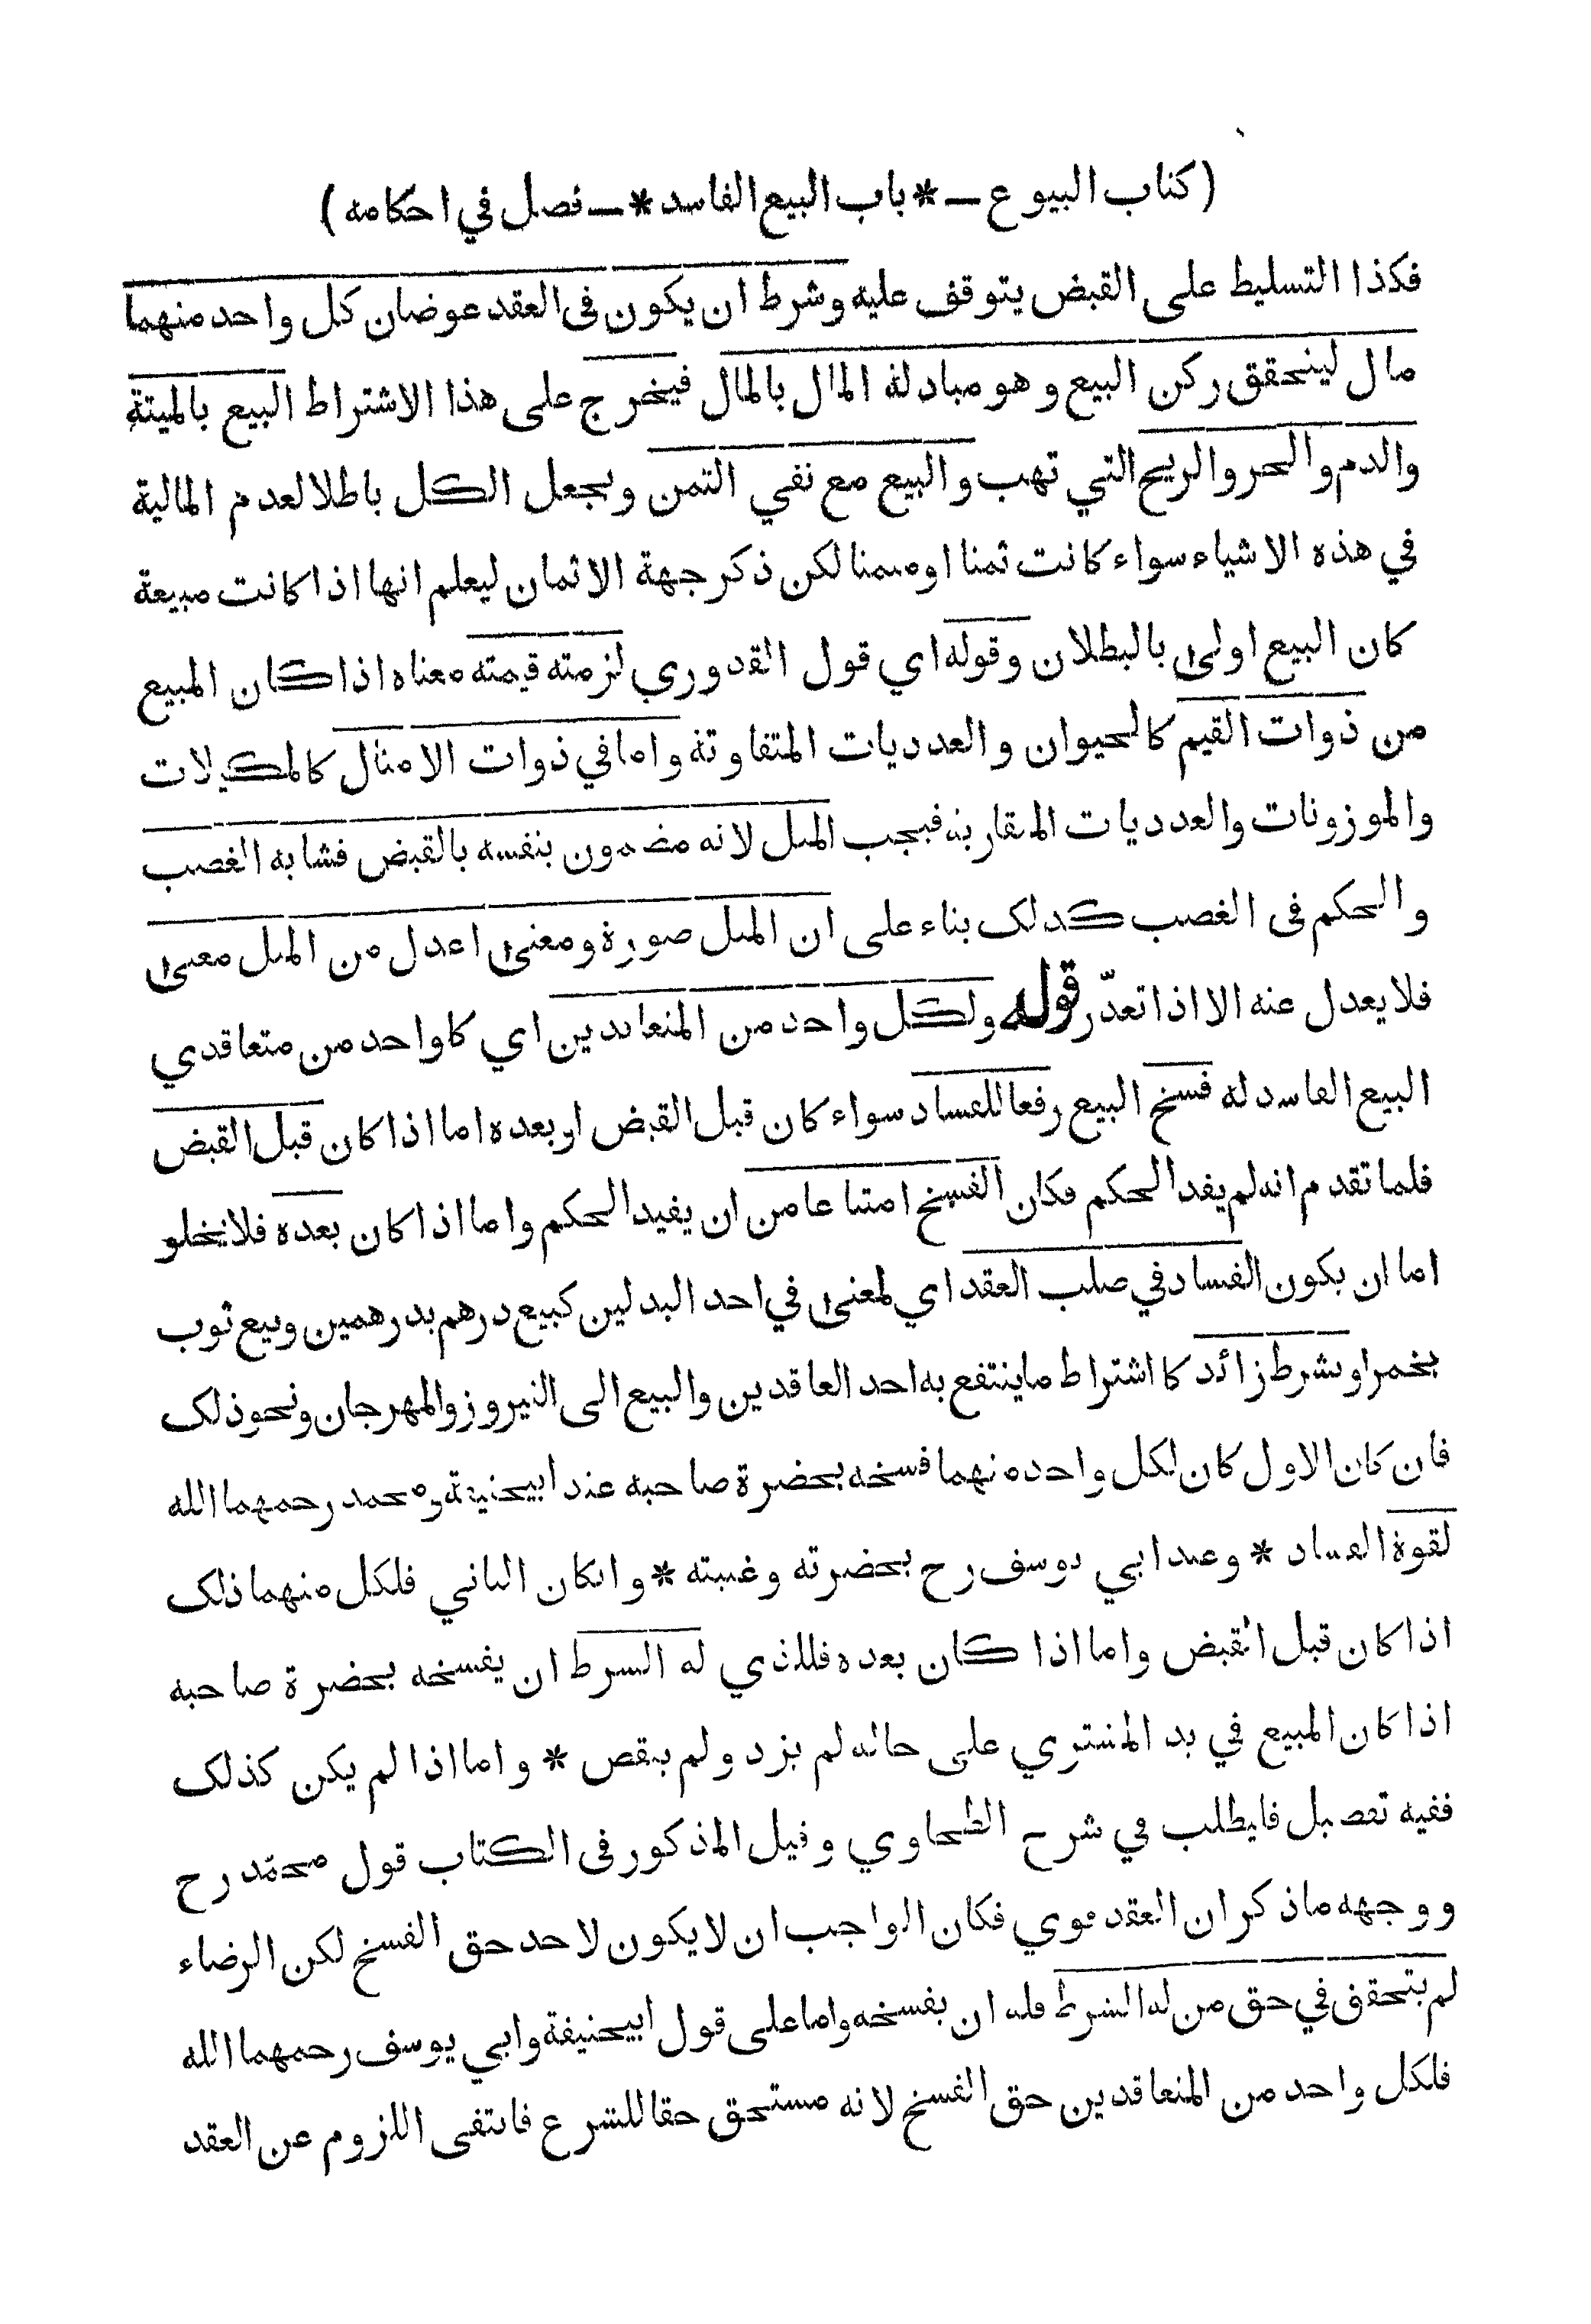 ( كتاب البيوع — * باب البيع الفاسد * — فصل في احكامه )
فكذا التسليط على القبض يتوقف عليه وشرط ان يكون في العقد عوضان كل واحد منهما
مال ليتحقق ركن البيع و هو مبادلة المال بالمال فيخرج على هذا الاشتراط البيع بالميتة
والدم والحر والريح التي تهب والبيع مع نفي الثمن ويجعل الكل باطلا لعدم المالية
في هذه الاشياء سواء كانت ثمنا او مثمنا لكن ذكر جهة الاثمان ليعلم انها اذا كانت مبيعة
كان البيع اولى بالبطلان وقوله اي قول القدوري لزمته قيمته معناه اذا كان المبيع
من ذوات القيم كالحيوان والعدديات المتفاوتة واما في ذوات الامثال كالمكيلات
والموزونات والعدديات المتقاربة فيجب المثل لانه مضمون بنفسه بالقبض فشابه الغصب
والحكم في الغصب كذلك بناء على ان المثل صورة ومعنى اعدل من المثل معنى
فلا يعدل عنه الا اذا تعذّر قوله ولكل واحد من المتعاقدين اي كا واحد من متعاقدي
البيع الفاسد له فسخ البيع رفعا للفساد سواء كان قبل القبض او بعده اما اذا كان قبل القبض
فلما تقدم انه لم يفد الحكم فكان الفسخ امتناعا من ان يفيد الحكم واما اذا كان بعده فلا يخلو
اما ان يكون الفساد في صلب العقد اي لمعنى في احد البدلين كبيع درهم بدرهمين وبيع ثوب
بخمر او بشرط زائد كا اشتراط ما ينتفع به احد العاقدين والبيع الى النيروز والمهرجان ونحو ذلك
فان كان الاول كان لكل واحد منهما فسخه بحضرة صاحبه عند ابيحنيفة ومحمد رحمهما الله
لقوة الفساد * وعند ابي يوسف رح بحضرته وغيبته * وانكان الثاني فلكل منهما ذلك
اذا كان قبل القبض واما اذا كان بعده فللذي له الشرط ان يفسخه بحضرة صاحبه
اذا كان المبيع في يد المشتري على حاله لم يزد ولم ينقص * واما اذا لم يكن كذلك
ففيه تفصيل فايطلب في شرح الطحاوي وقيل المذكور في الكتاب قول محمّد رح
ووجهه ما ذكر ان العقد قوي فكان الواجب ان لا يكون لاحد حق الفسخ لكن الرضاء
لم يتحقق في حق من له الشرط فله ان يفسخه واما على قول ابيحنيفة وابي يوسف رحمهما الله
فلكل واحد من المتعاقدين حق الفسخ لانه مستحق حقا للشرع فانتفى اللزوم عن العقد